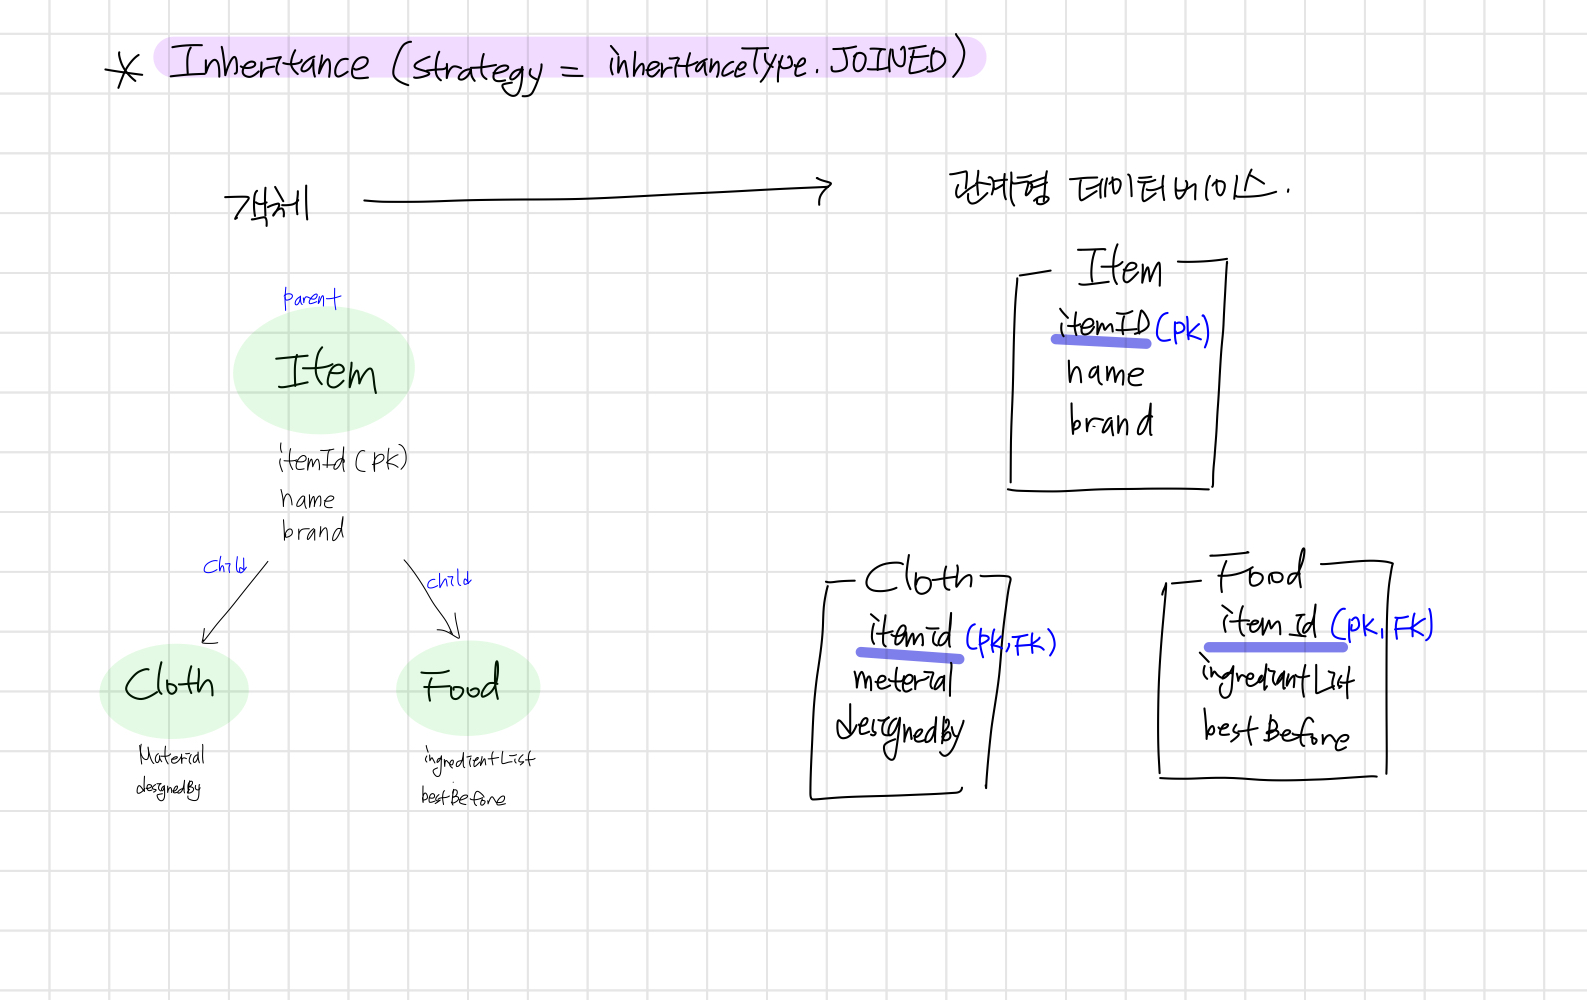 * Inheritance (strategy = inheritanceType.JOINED)
객체
관계형 데이터베이스.
parent
Item
itemId (PK)
name
brand
child
child
Cloth
Material
designedBy
Food
ingredientList
bestBefore
Item
itemID (PK)
name
brand
Cloth
itemid (PK, FK)
meterial
designedBy
Food
itemId (PK, FK)
ingrediantList
bestBefore